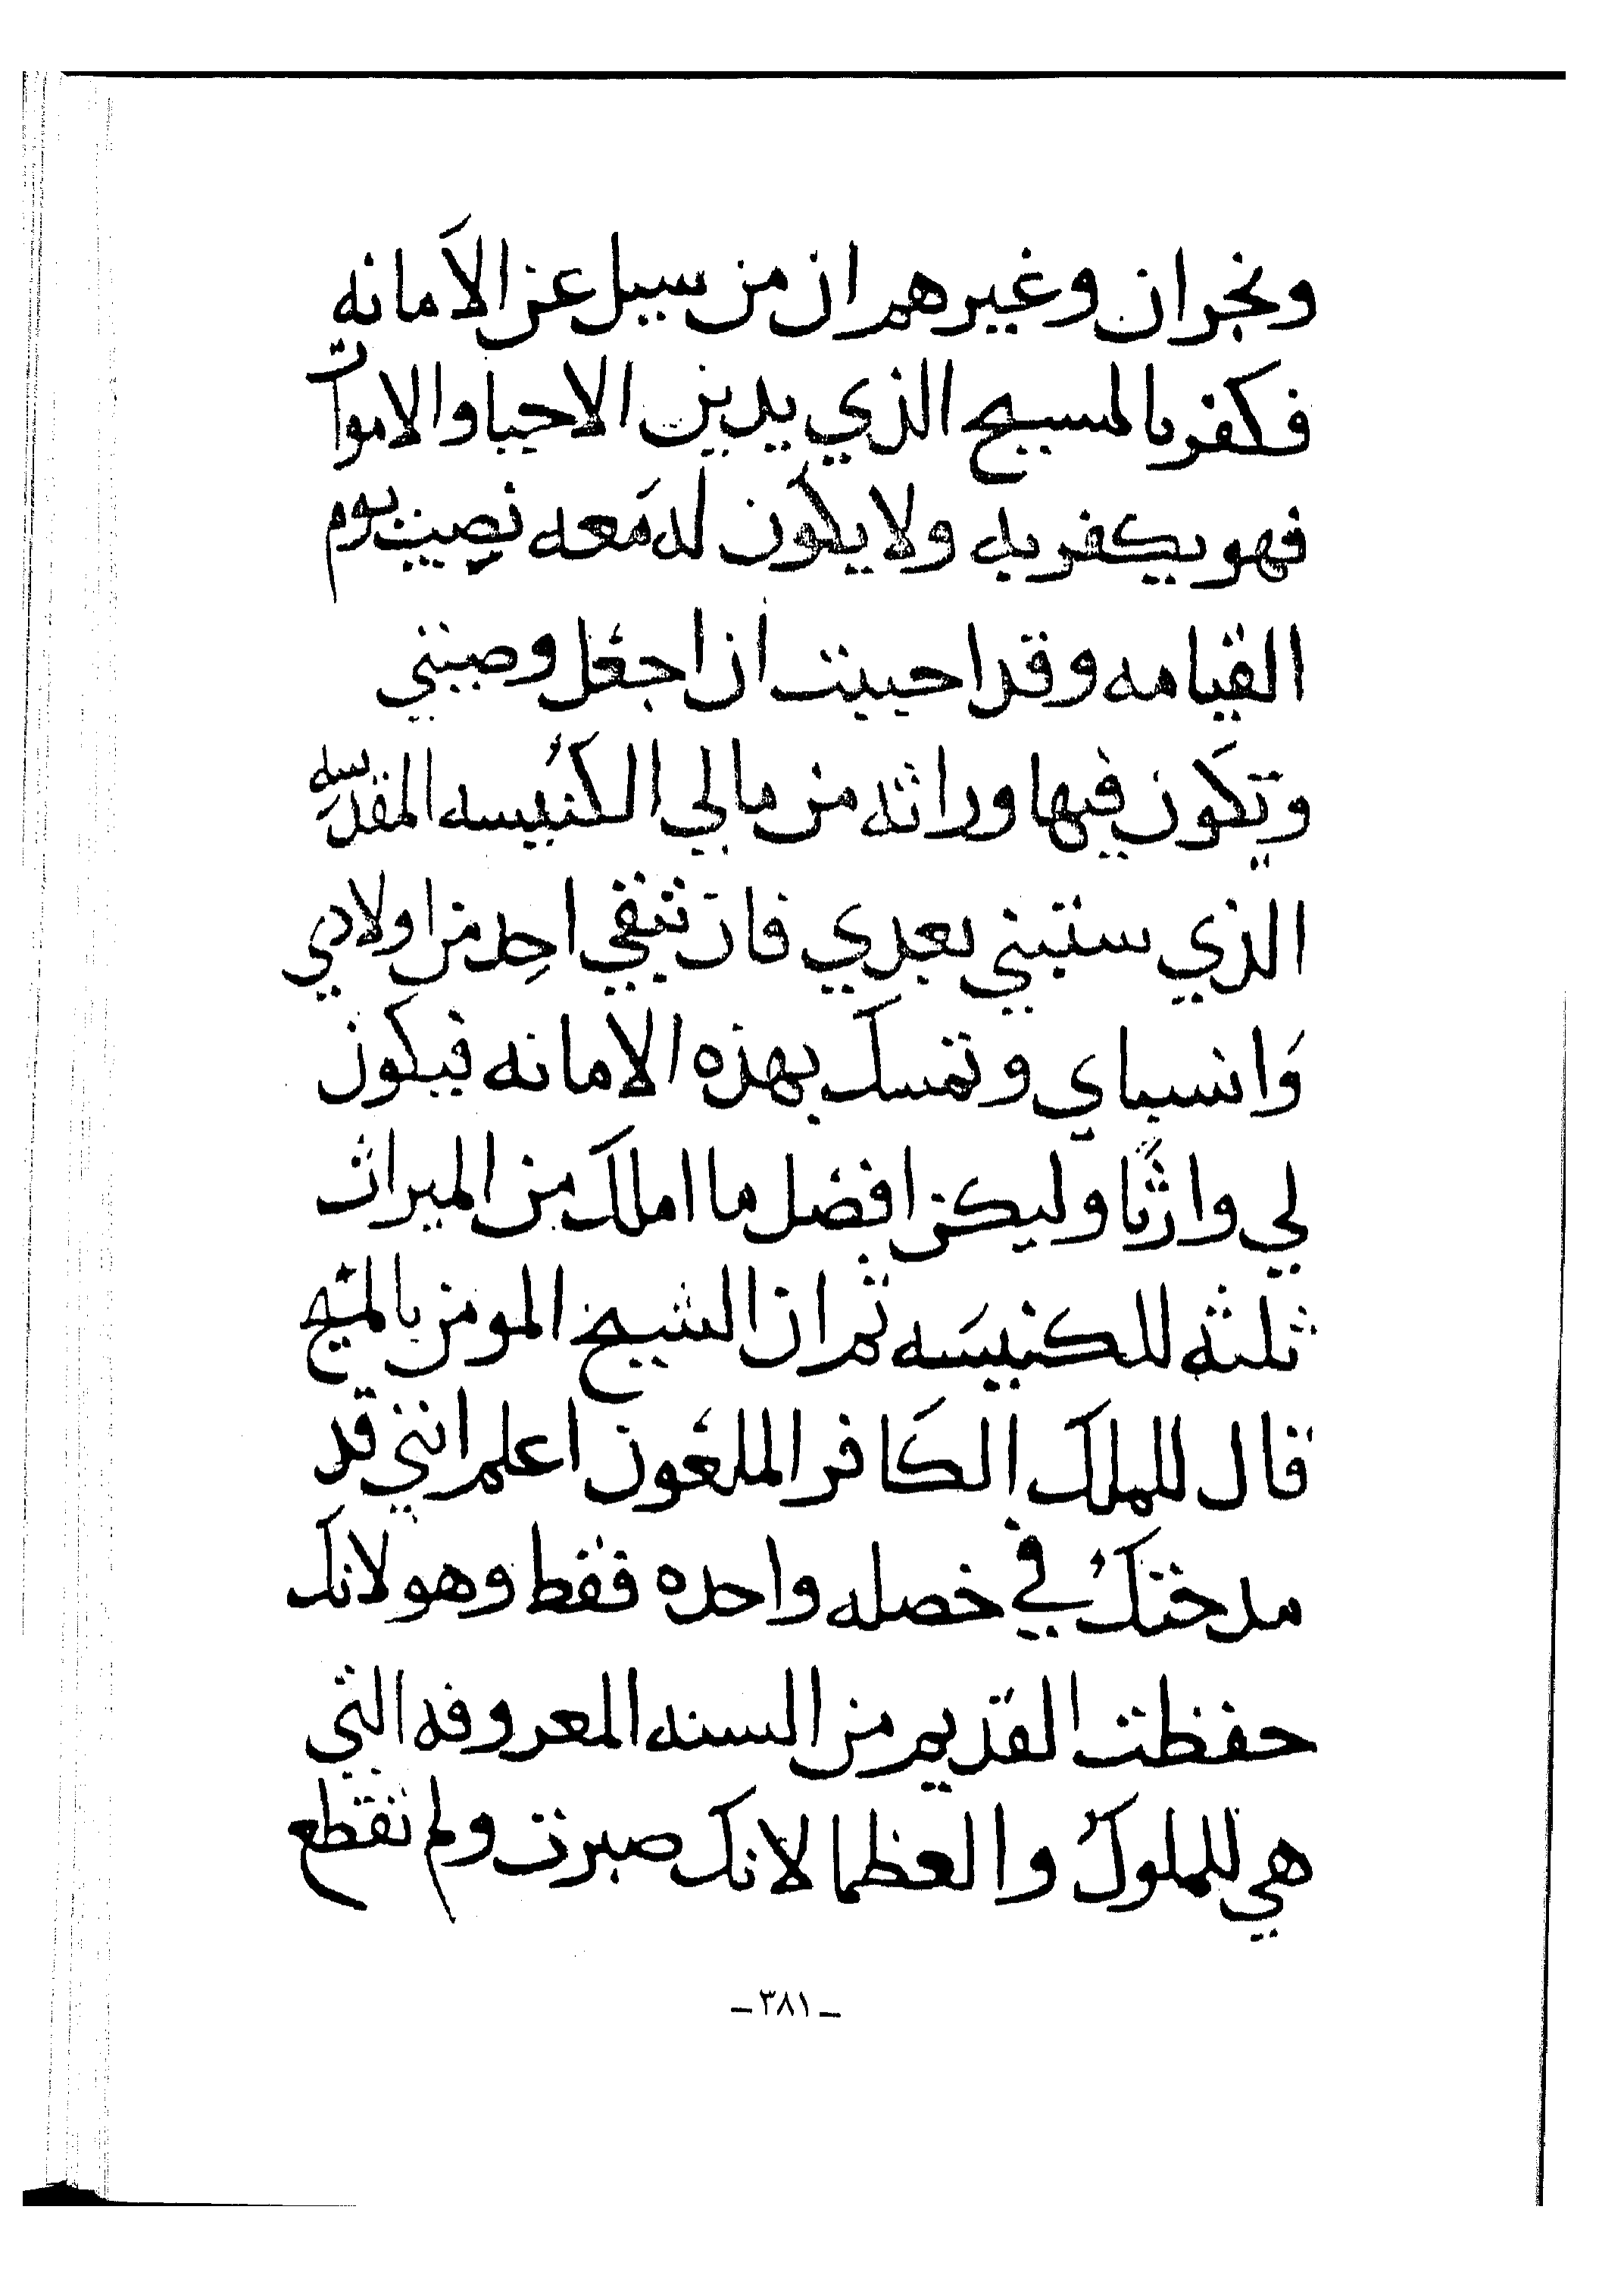 ونجران وغيرهم ان من سبيل عن الاَمانه
فكفر بالمسيح الذي يدين الاحيا والاموات
فهو يكفر به ولا يكون له مَعه نصِيب يوم
القيامه وقد احببت ان اجعل وصيتي
وتكون فيها وراثه من مالي الكنُيسه المقدسه
الذي ستبني بعدي فان تبقي احِد من اولادي
وَانسباي وتمسك بهذه الامانه فيكون
لي وارثًا وليكن افضل ما املك من الميراث
ثلثه للكنيسَه ثم ان الشيخ المومن بالمسَيح
قال للملك الكَافر الملعَون اعلم انني قد
مدحتكُ في خصله واحده فقط وهو لانك
حفظت القديم من السنه المعروفه التي
هي للملوكُ والعظما لانك صبرت ولم تقطع
ـ ٣٨١ ـ